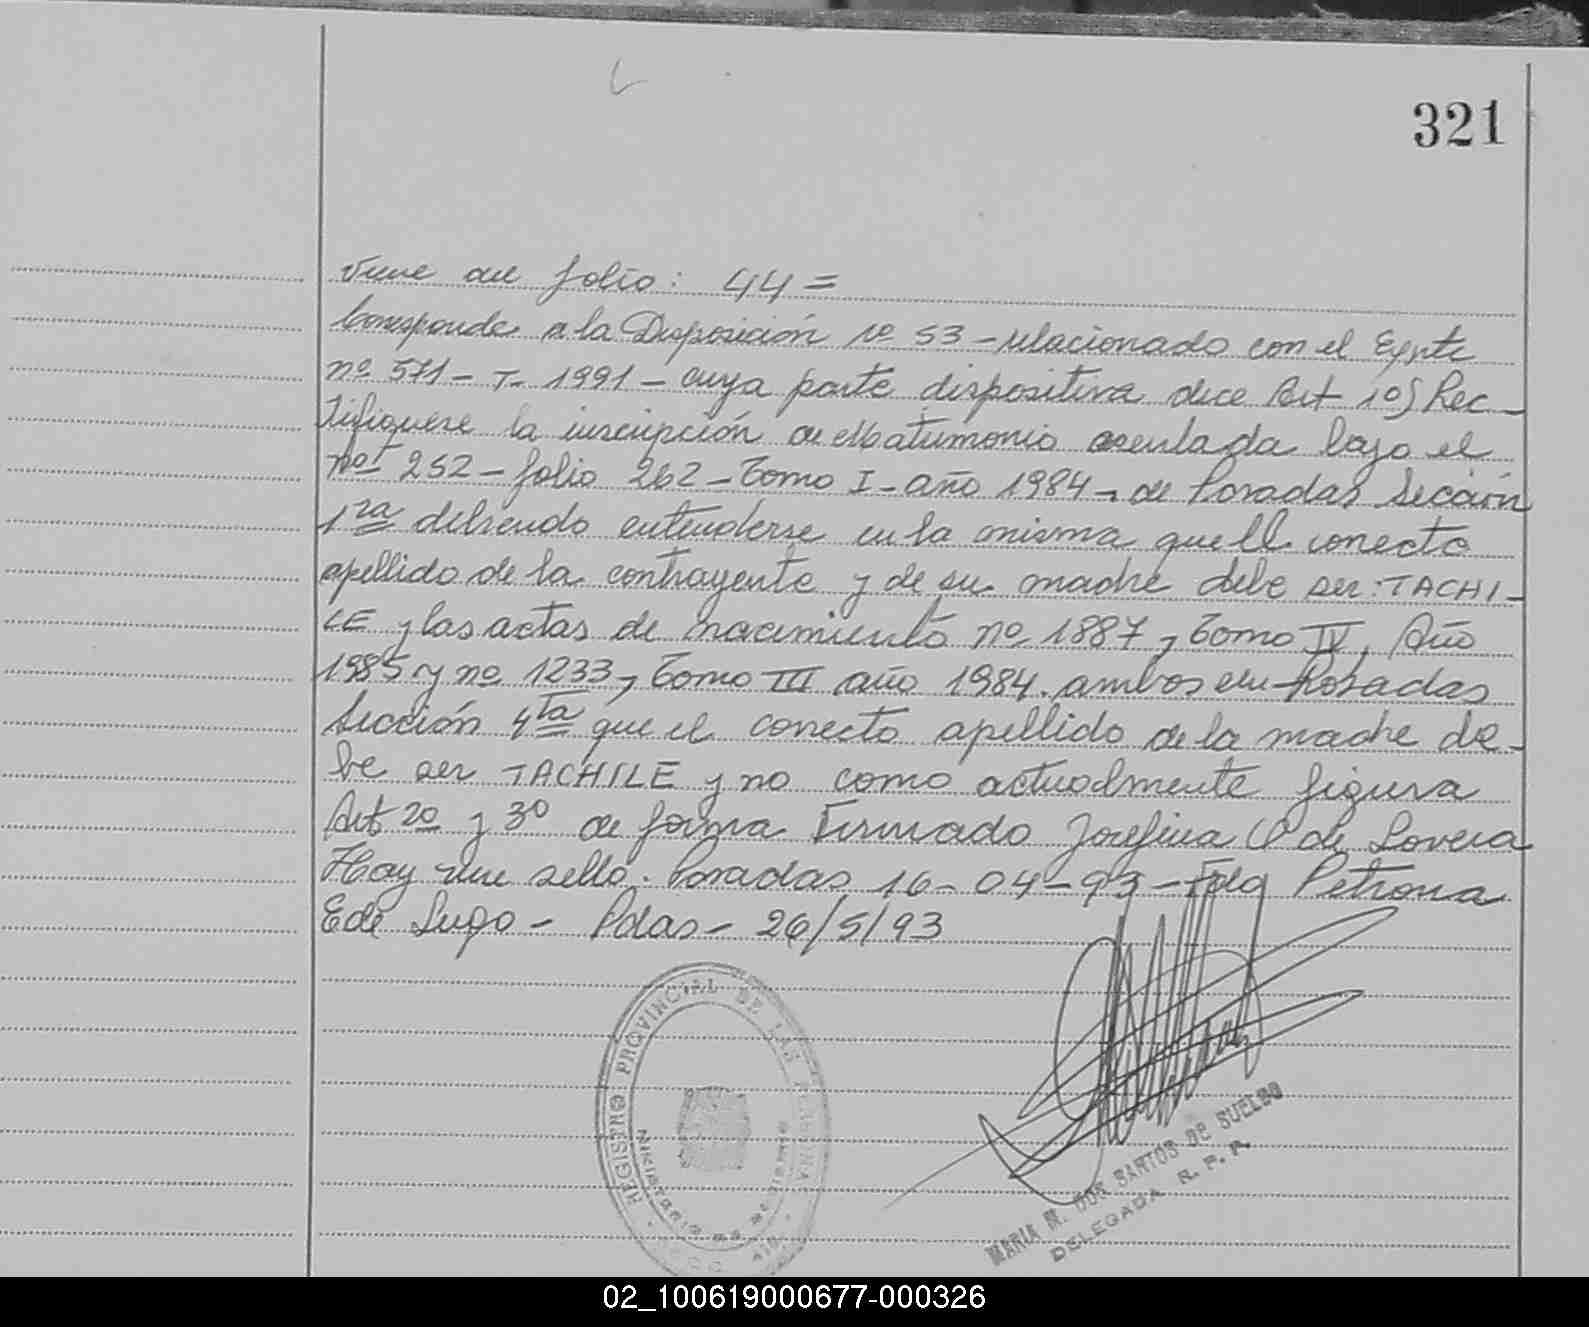 321
Viene del folio: 44=
Corresponde a la Disposición nº 53 - relacionado con el Expte
nº 571 - T - 1991 - cuya parte dispositiva dice Art 1º) Rec-
tifiquese la inscripción de Matrimonio asentada bajo el
nº 252 - folio 262 - Tomo I - año 1984 - de Posadas Sección
1ra debiendo entenderse en la misma que el correcto
apellido de la contrayente y de su madre debe ser: TACHI-
LE y las actas de nacimiento nº 1887, Tomo IV, Año
1985 y nº 1233, Tomo III año 1984. ambos en Posadas
Sección 4ta que el correcto apellido de la madre de-
be ser TACHILE y no como actualmente figura
Art 2º y 3º de forma Firmado Josefina O de Lovera
Hay un sello. Posadas 16-04-93 - Fdo Petrona
E de Lugo - Pdas - 26/5/93
REGISTRO PROVINCIAL DE LAS PERSONAS
MINISTERIO DE GOBIERNO
MARIA M. DOS SANTOS DE SUELDO
DELEGADA R. P. P.
02_100619000677-000326